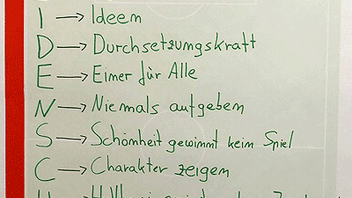 I → Ideen
D → Durchsetzungskraft
E → Einer für Alle
N → Niemals aufgeben
S → Schönheit gewinnt kein Spiel
C → Charakter zeigen